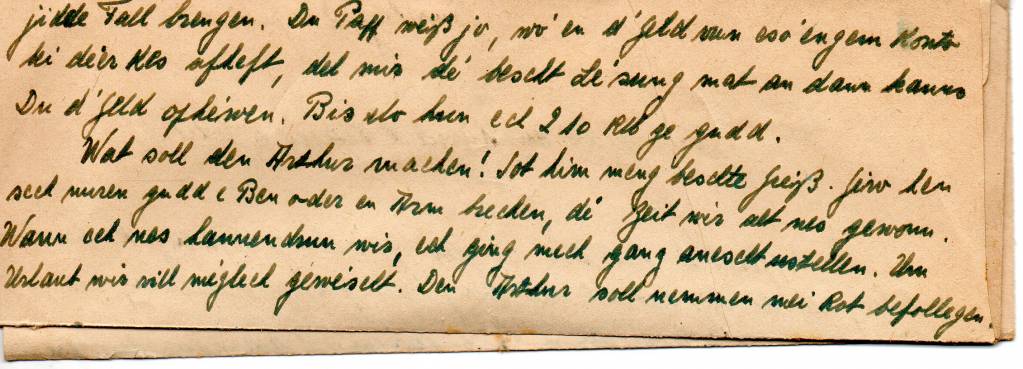 jidde Fall brengen. Du Paff weiß jo, wó en d'Geld vun esó engem Konto
ki déer Kés ofheft, det mir dé bescht Lésung mat an dann kanns
Du d'Geld ophéwen. Bis elo hun ech 210 RM ge gudd.
Wat soll den Arthur machen! Sot him meng beschte Greiß. Girw hen
sech nuren gudd e Ben oder en Arm briechen, dé Zeit wir alt nes gewonn.
Wann ech nes hannendrun wir, ech ging mech gang anescht ustellen. Um
Urlaub wir vill méglech gewiescht. Den Arthur soll nemmen mei Rot befollegen.